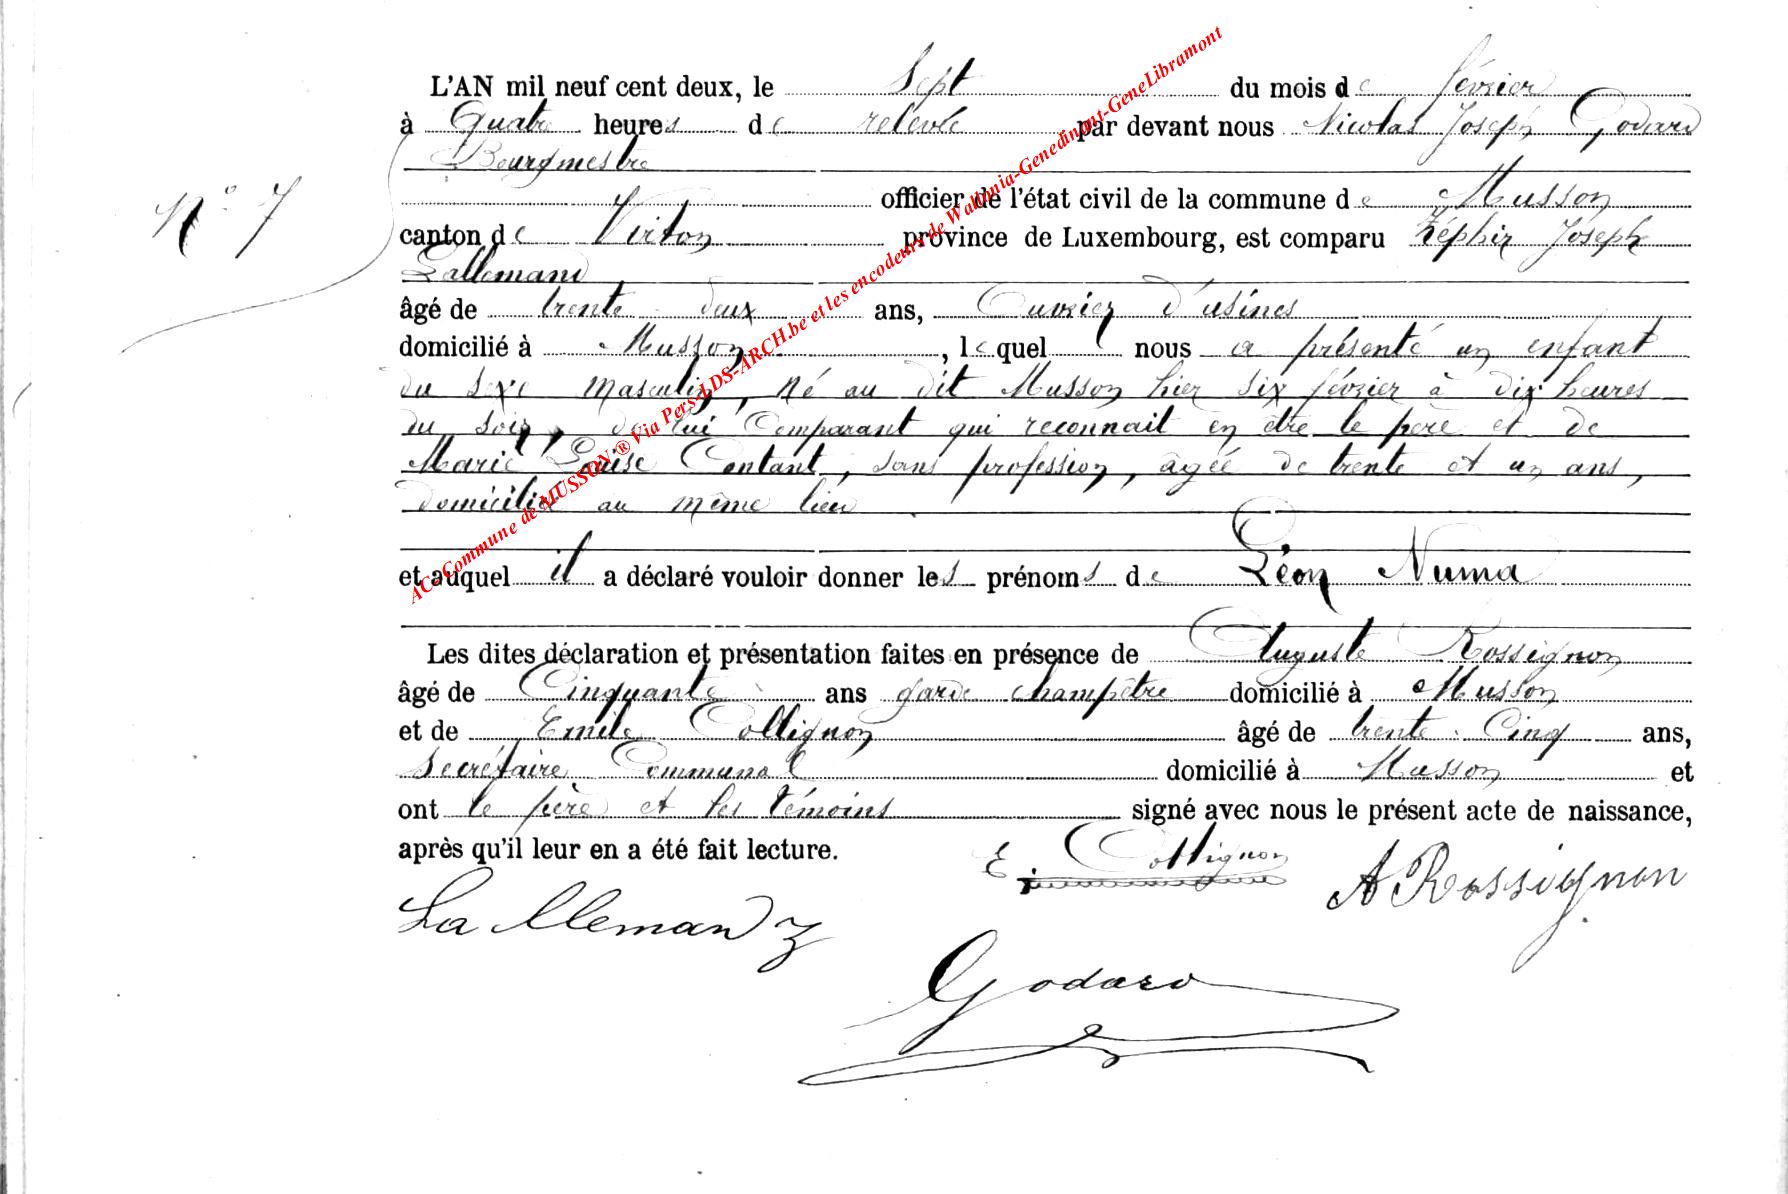 L'AN mil neuf cent deux, le Sept du mois de février
à Quatre heures de relevée par devant nous Nicolas Joseph Godard
Bourgmestre
officier de l'état civil de la commune de Musson
N° 7
canton de Virton province de Luxembourg, est comparu Zéphir Joseph
Lallemand
âgé de trente deux ans, Ouvrier d'usines
domicilié à Musson, lequel nous a présenté un enfant
du sexe masculin, né au dit Musson hier six février à dix heures
du soir, de lui Comparant qui reconnait en être le père et de
Marie Louise Contant, sans profession, âgée de trente et un ans,
domiciliée au même lieu
et auquel il a déclaré vouloir donner les prénoms de Léon Numa
Les dites déclaration et présentation faites en présence de Auguste Rossignon
âgé de Cinquante ans garde champêtre domicilié à Musson
et de Emile Collignon âgé de trente Cinq ans,
Secrétaire Communal domicilié à Musson et
ont le père et les témoins signé avec nous le présent acte de naissance,
après qu'il leur en a été fait lecture.
E. Collignon
A Rossignon
Lallemand Z
Godard
AC-Commune de MUSSON ® Via Pers-LDS-ARCH.be et les encodeurs de Wallonia-Genedinant-GeneLibramont